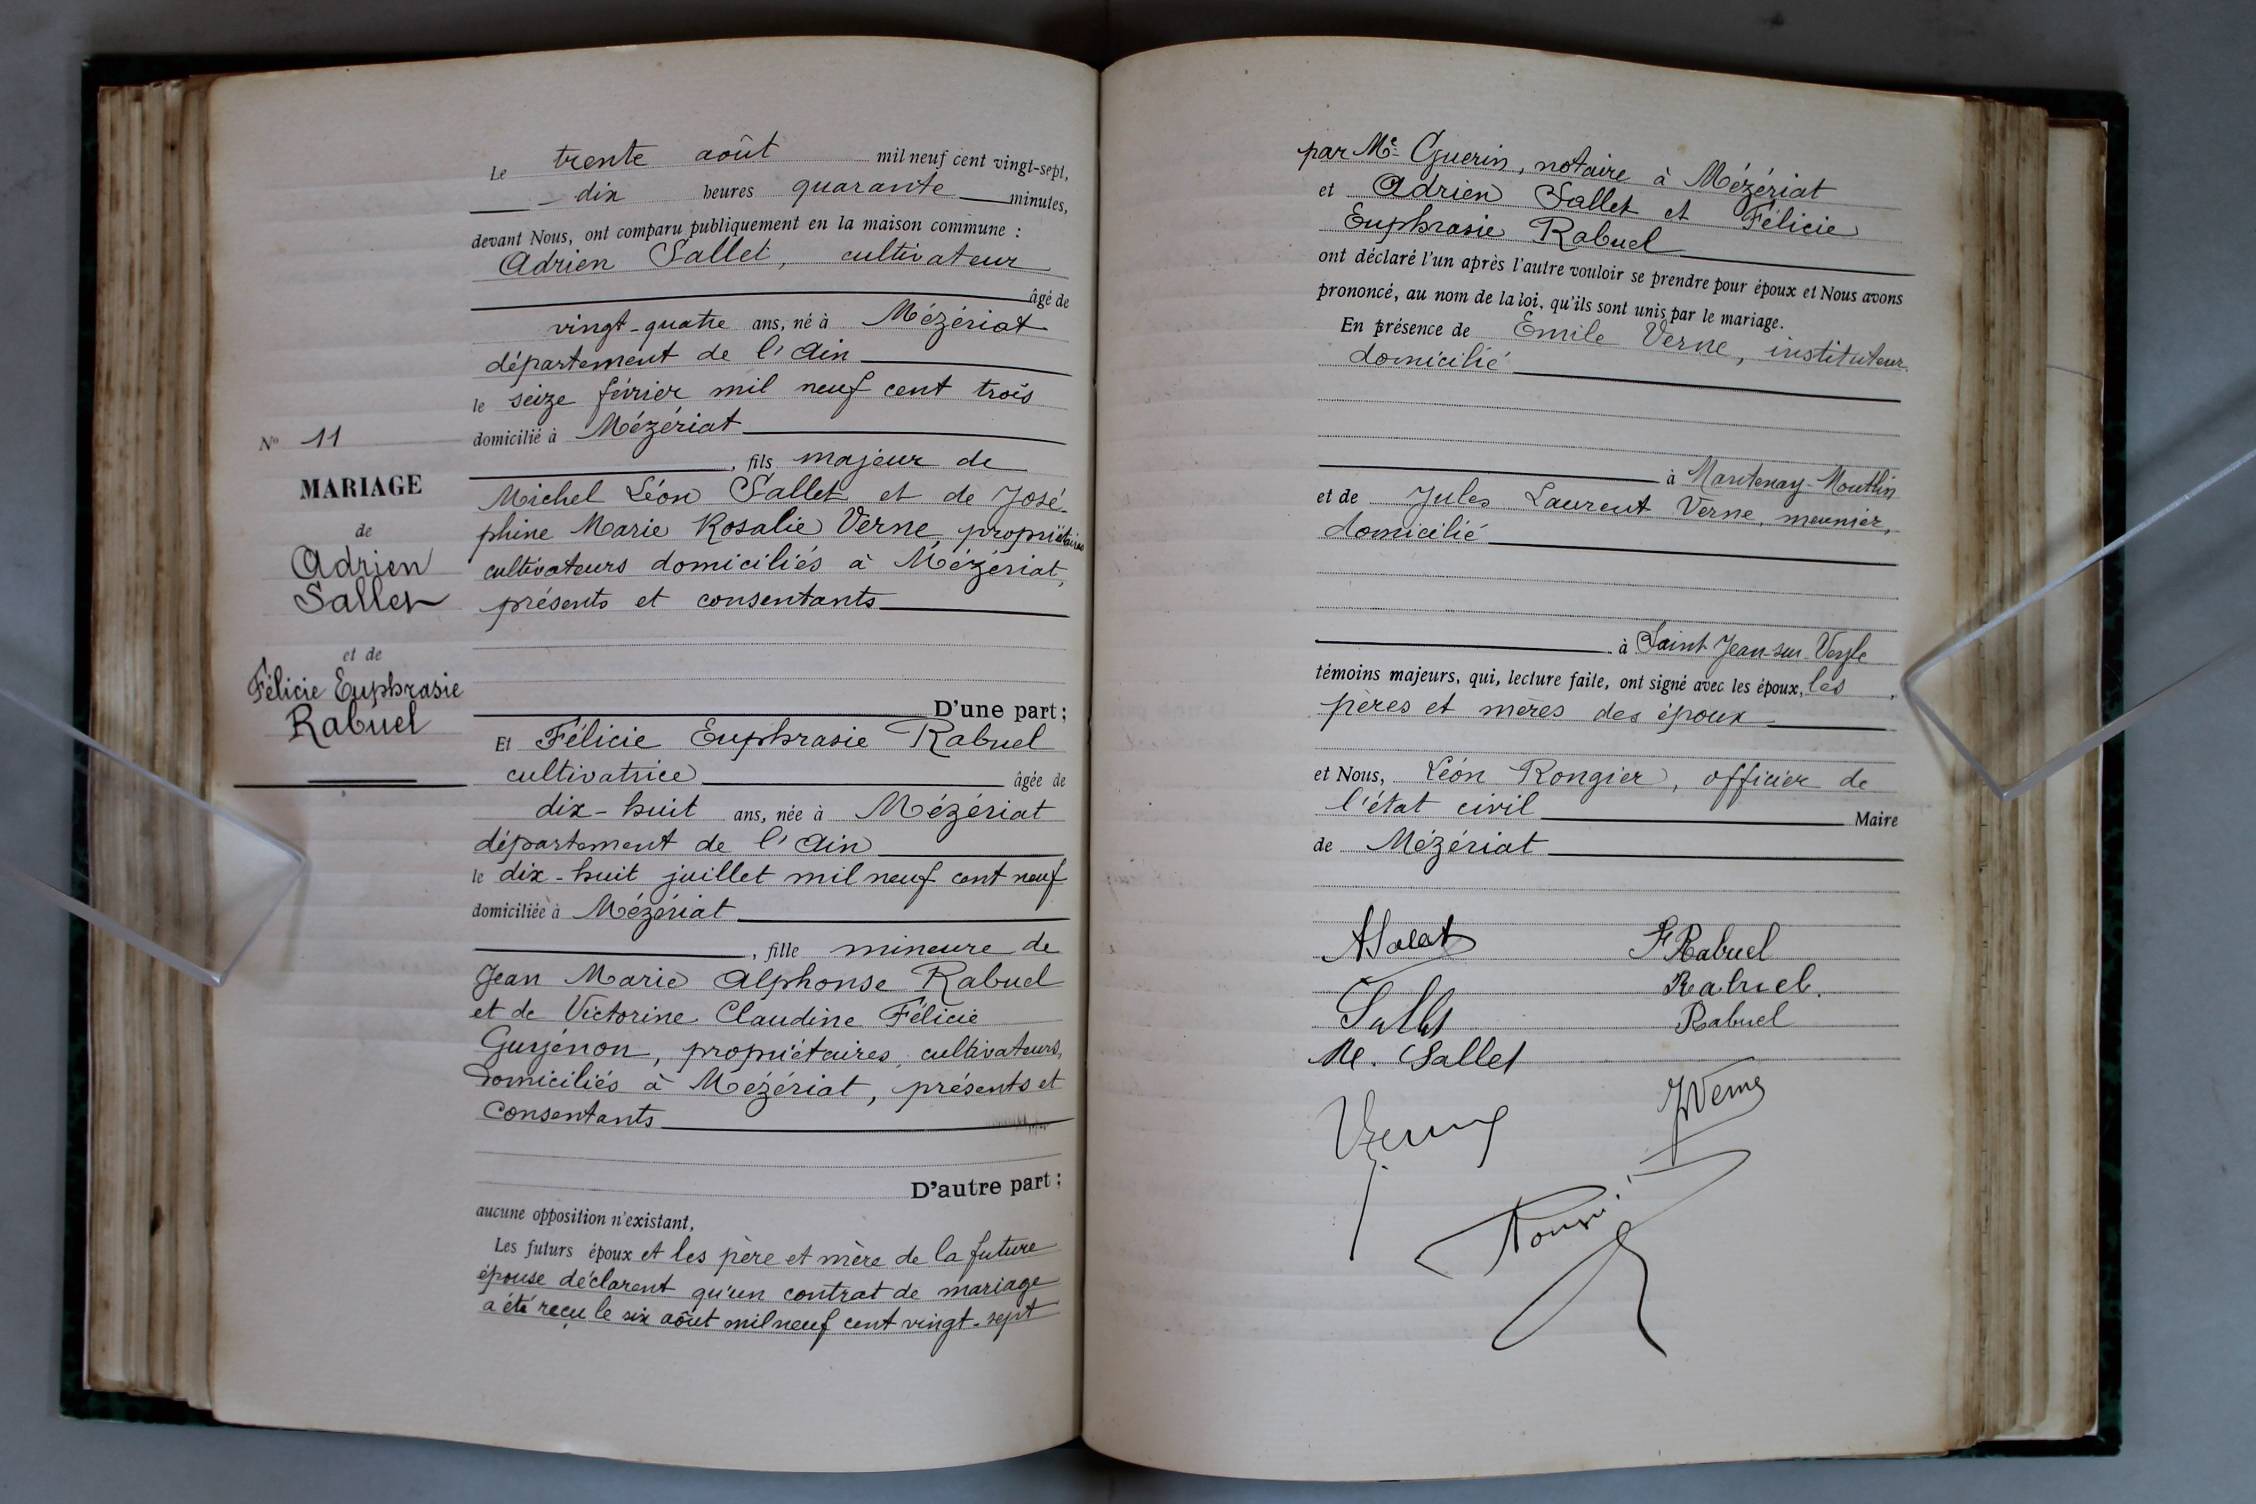 Le trente août mil neuf cent vingt-sept,
dix heures quarante minutes,
devant Nous, ont comparu publiquement en la maison commune :
Adrien Sallet, cultivateur
âgé de
vingt-quatre ans, né à Mézériat
département de l'Ain
le seize février mil neuf cent trois
domicilié à Mézériat
, fils majeur de
Michel Léon Sallet et de José-
phine Marie Rosalie Verne, propriétaires
cultivateurs domiciliés à Mézériat,
présents et consentants
D'une part ;
Nº 11
MARIAGE
de
Adrien
Sallet
et de
Félicie Euphrasie
Rabuel
Et Félicie Euphrasie Rabuel
cultivatrice âgée de
dix-huit ans, née à Mézériat
département de l'Ain
le dix-huit juillet mil neuf cent neuf
domiciliée à Mézériat
, fille mineure de
Jean Marie Alphonse Rabuel
et de Victorine Claudine Félicie
Guyénon, propriétaires, cultivateurs,
domiciliés à Mézériat, présents et
consentants
D'autre part ;
aucune opposition n'existant,
Les futurs époux et les père et mère de la future
épouse déclarent qu'un contrat de mariage
a été reçu le six août mil neuf cent vingt-sept
par Me Guerin, notaire à Mézériat
et Adrien Sallet et Félicie
Euphrasie Rabuel
ont déclaré l'un après l'autre vouloir se prendre pour époux et Nous avons
prononcé, au nom de la loi, qu'ils sont unis par le mariage.
En présence de Emile Verne, instituteur,
domicilié
à Mantenay-Montlin
et de Jules Laurent Verne, meunier,
domicilié
à Saint Jean-sur-Veyle
témoins majeurs, qui, lecture faite, ont signé avec les époux, les ,
pères et mères des époux
et Nous, Léon Rongier, officier de
l'état civil Maire
de Mézériat
ASalet FRabuel
Rabuel.
Sallet Rabuel
M. Sallet
JVerne
Verne